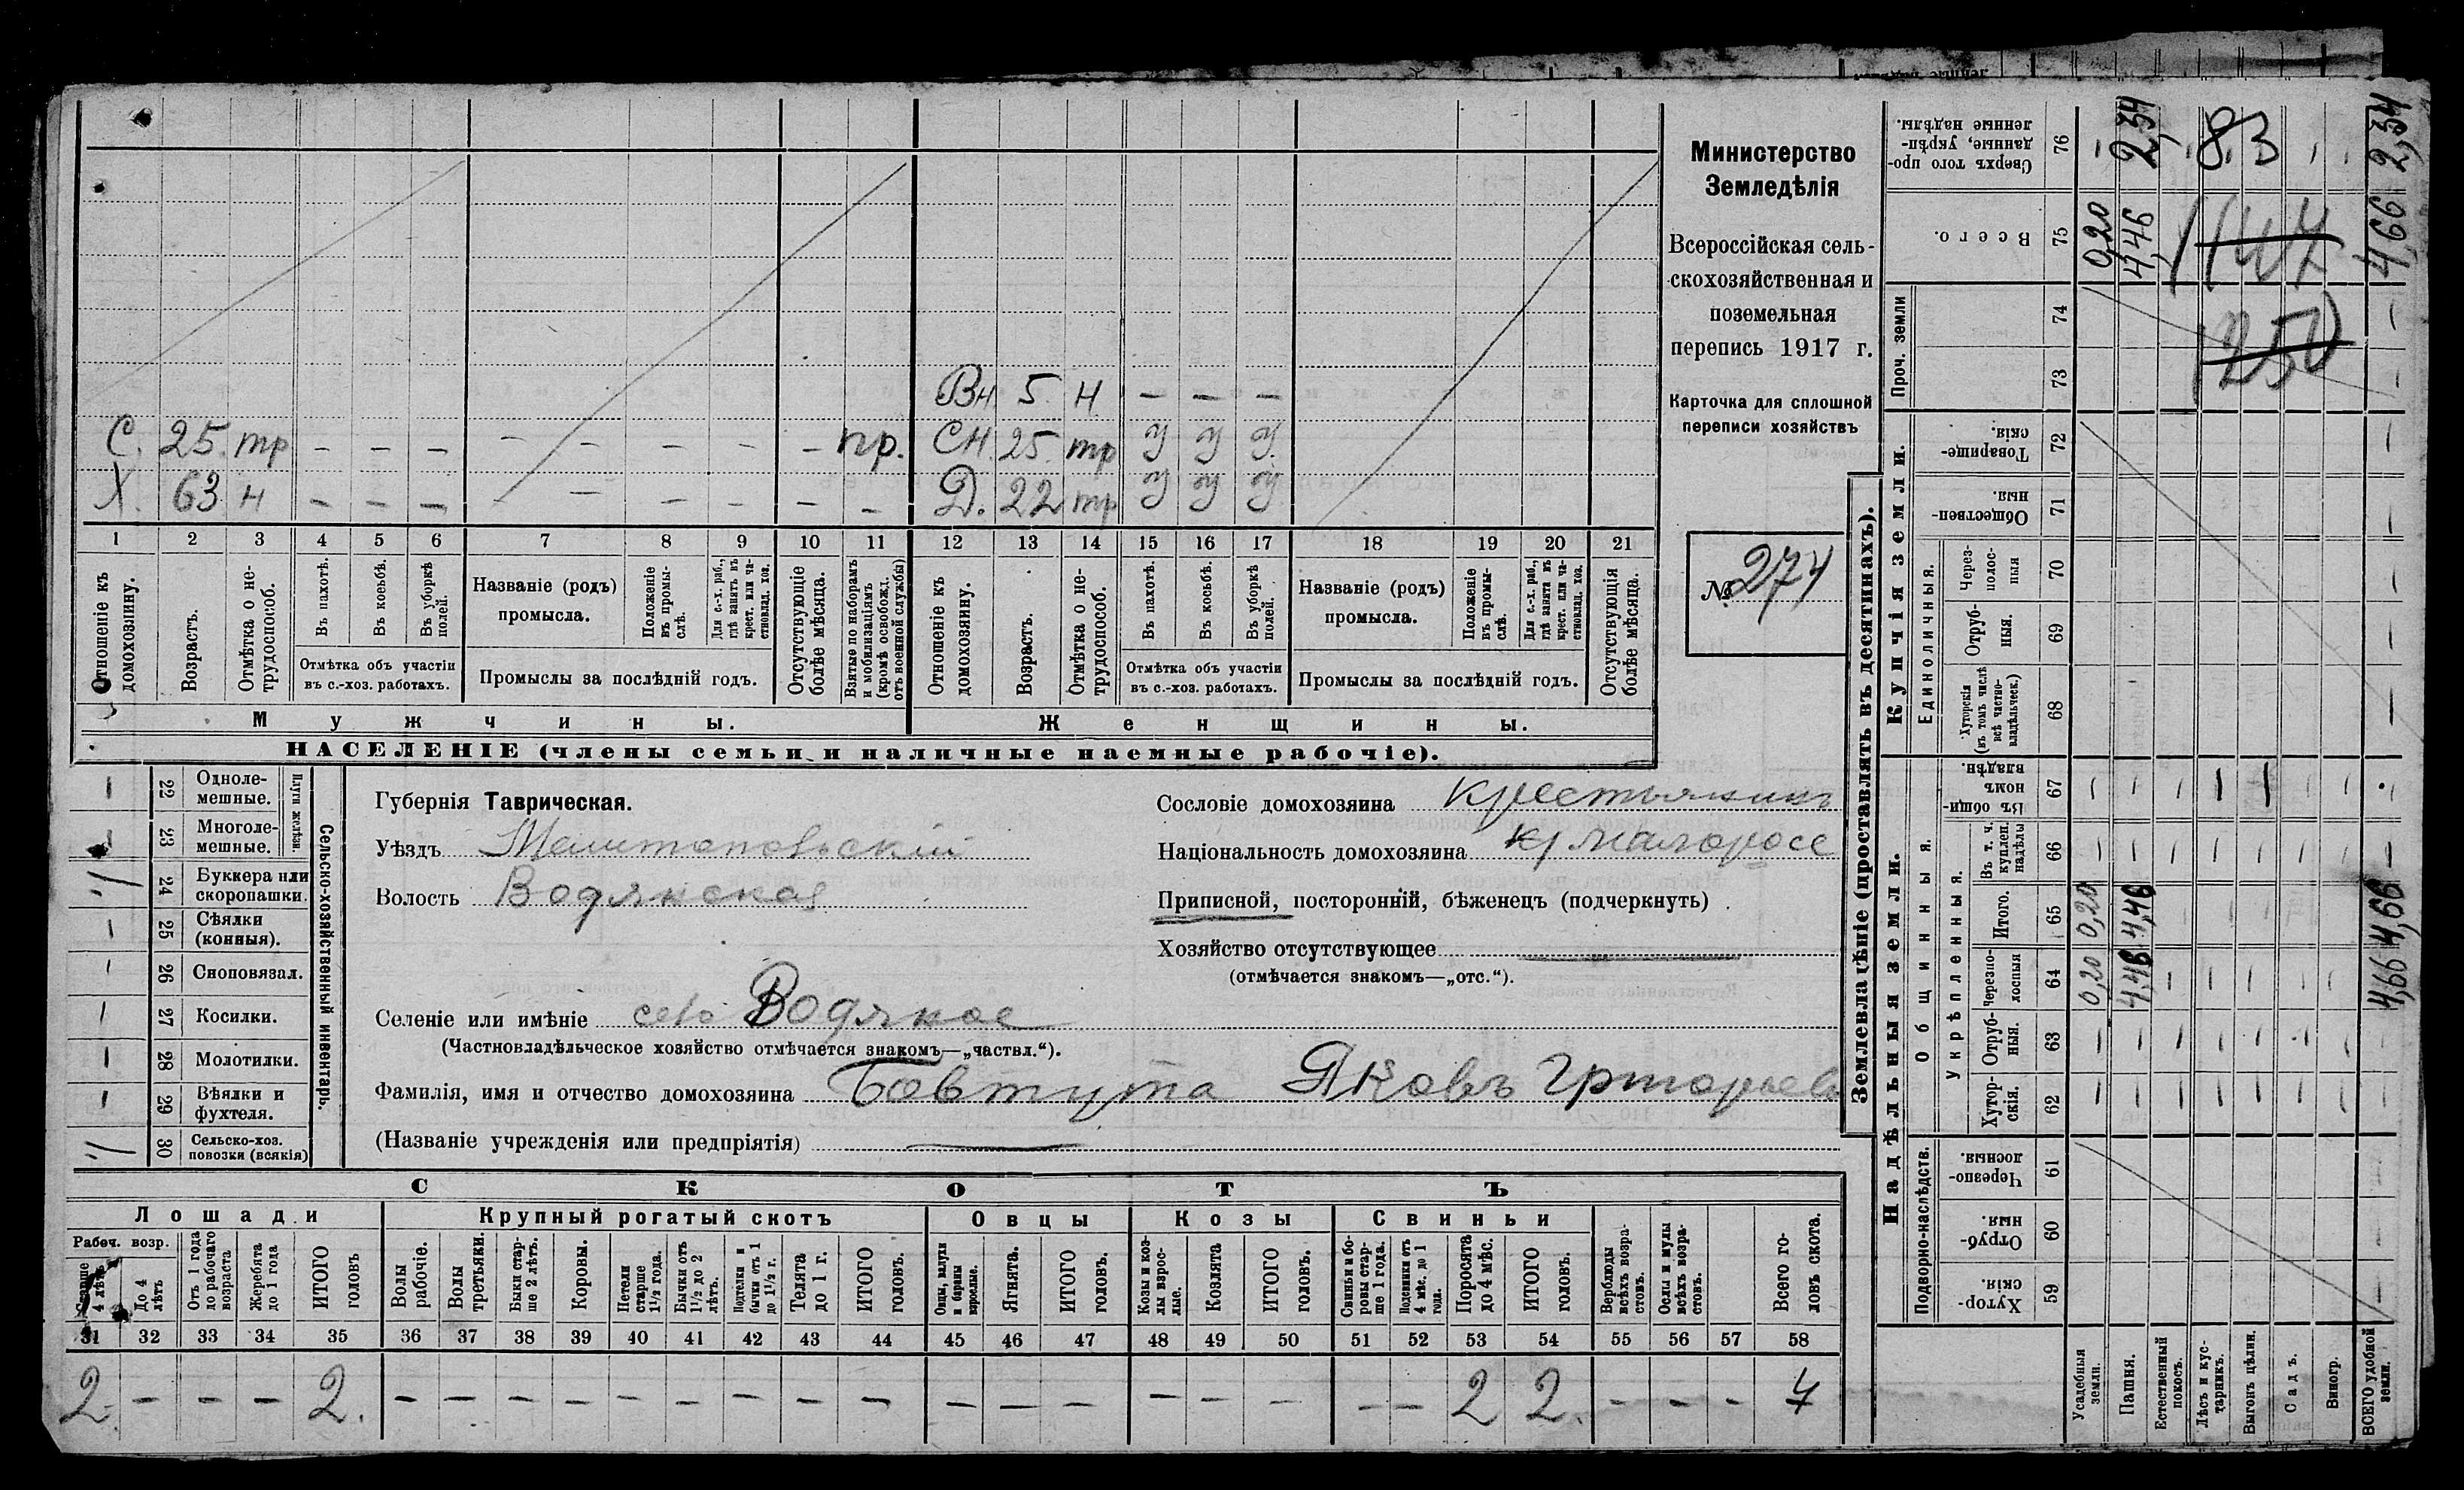 Министерство
Земледѣлія
Всероссійская сель-
скохозяйственная и
поземельная
перепись 1917 г.
Карточка для сплошной
переписи хозяйствъ
№ 274
Вн 5 н — — —
С. 25. тр — — — — — — — — пр. СН. 25. тр у у у
Х. 63 н — — — — — — — — Д. 22 тр у у у
1 2 3 4 5 6 7 8 9 10 11 12 13 14 15 16 17 18 19 20 21
Отношеніе къ домохозяину.
Возрастъ.
Отмѣтка о не-трудоспособ.
Въ пахотѣ.
Въ косьбѣ.
Въ уборкѣ полей.
Отмѣтка объ участіи
въ с.-хоз. работахъ.
Названіе (родъ)
промысла.
Положеніе въ промы-слѣ.
Для с.-х. раб., гдѣ занятъ въ крест. или ча-стновлад. хоз.
Промыслы за послѣдній годъ.
Отсутствующіе болѣе мѣсяца.
Взятые по наборамъ и мобилизаціямъ (кромѣ освобожд. отъ военной службы)
Отношеніе къ домохозяину.
Возрастъ.
Отмѣтка о не-трудоспособ.
Въ пахотѣ.
Въ косьбѣ.
Въ уборкѣ полей.
Отмѣтка объ участіи
въ с.-хоз. работахъ.
Названіе (родъ)
промысла.
Положеніе въ промы-слѣ.
Для с.-х. раб., гдѣ занята въ крест. или ча-стновлад. хоз.
Промыслы за послѣдній годъ.
Отсутствующія болѣе мѣсяца.
Мужчины. Женщины.
НАСЕЛЕНІЕ (члены семьи и наличные наемные рабочіе).
Сельско-хозяйственный инвентарь.
Плуги желѣзн.
22 Одноле-мешные.
23 Многоле-мешные.
24 Буккера или скоропашки.
25 Сѣялки (конныя).
26 Сноповязал.
27 Косилки.
28 Молотилки.
29 Вѣялки и фухтеля.
30 Сельско-хоз. повозки (всякія)
Губернія Таврическая.
Уѣздъ Мелитопольскій
Волость Водянская
Сословіе домохозяина крестьянинъ
Національность домохозяина малоросс
Приписной, посторонній, бѣженецъ (подчеркнуть)
Хозяйство отсутствующее
(отмѣчается знакомъ—„отс.“).
Селеніе или имѣніе село Водяное
(Частновладѣльческое хозяйство отмѣчается знакомъ—„частвл.“).
Фамилія, имя и отчество домохозяина Бовтута Яковъ Григорьев
(Названіе учрежденія или предпріятія) —
СКОТЪ
Лошади Крупный рогатый скотъ Овцы Козы Свиньи
Рабоч. возр.
Старше 4 лѣтъ
До 4 лѣтъ
Отъ 1 года до рабочаго возраста
Жеребята до 1 года
ИТОГО головъ
Волы рабочіе.
Волы третьяки.
Быки стар-ше 2 лѣтъ.
Коровы.
Нетели старше 1½ года.
Бычки отъ 1½ до 2 лѣтъ.
Подтелки и бычки отъ 1 до 1½ г.
Телята до 1 г.
ИТОГО головъ.
Овцы, валухи и бараны взрослые.
Ягнята.
ИТОГО головъ.
Козы и коз-лы взрос-лые.
Козлята
ИТОГО головъ.
Свиньи и бо-ровы стар-ше 1 года.
Подсвинки отъ 4 мѣс. до 1 года.
Поросята до 4 мѣс.
ИТОГО головъ.
Верблюды всѣхъ возра-стовъ.
Ослы и мулы всѣхъ возра-стовъ.
Всего го-ловъ скота.
31 32 33 34 35 36 37 38 39 40 41 42 43 44 45 46 47 48 49 50 51 52 53 54 55 56 57 58
2. — — — 2. — — — — — — — — — — — — — — — — — 2 2. — — — 4
Землевладѣніе (проставлять въ десятинахъ).
Надѣльныя земли. Купчія земли. Проч. земли
Подворно-наслѣдств.
Общинныя.
Укрѣпленныя.
Единоличныя.
59 Хутор-скія.
60 Отруб-ныя.
61 Черезпо-лосныя.
62 Хутор-скія.
63 Отруб-ныя.
64 Черезпо-лосныя 0,20 4,46 4,66
65 Итого. 0,20 4,46 4,66
66 Въ т. ч. куплен. надѣлы
67 Въ общин-номъ владѣн.
68 Хуторскія (въ томъ числѣ всѣ частно-владѣльческ.)
69 Отруб-ныя.
70 Через-полос-ныя
71 Обществен-ныя.
72 Товарище-скія.
73
74
75 Всего. 0,20 4,46 4,66
76 Сверхъ того про-данные, укрѣп-ленные надѣлы. 2,34 2,34
83
1250
Усадебныя земли.
Пашня.
Естественный покосъ.
Лѣсъ и кус-тарникъ.
Выгонъ цѣлин.
Садъ.
Виногр.
ВСЕГО удобной земли.